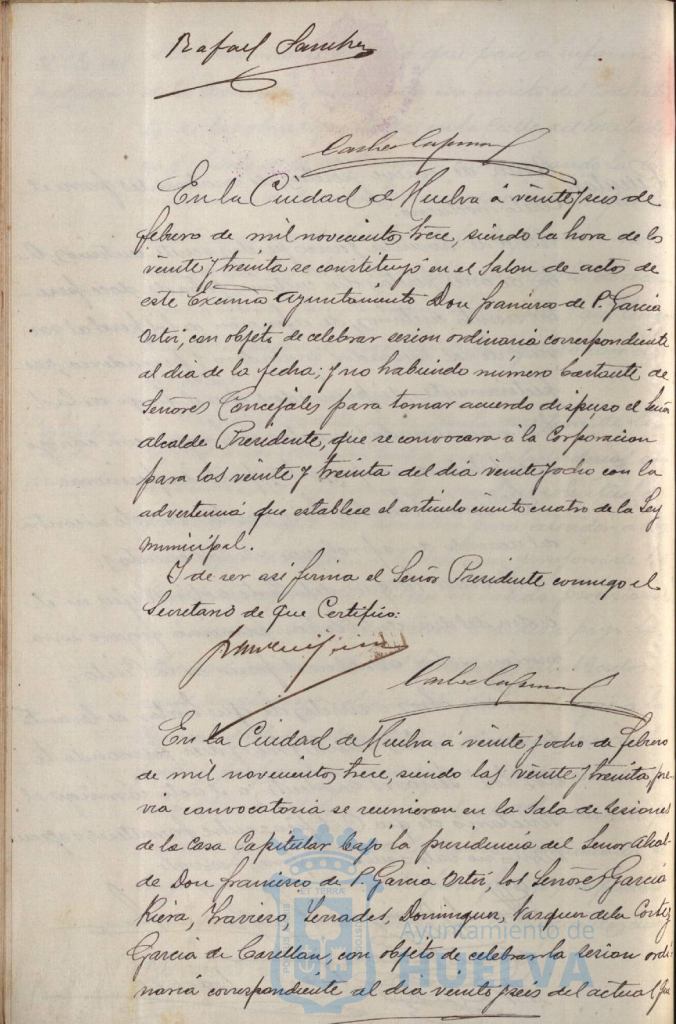 Rafael Sanchez
En la Ciudad de Huelva á veinte y seis de
febrero de mil novecientos trece, siendo la hora de las
veinte y treinta se constituyó en el Salon de actos de
este Excmo Ayuntamiento Don francisco de P. Garcia
Ortiz, con objeto de celebrar sesion ordinaria correspondiente
al dia de la fecha; y no habiendo número bastante de
Señores Concejales para tomar acuerdo dispuso el Señor
alcalde Presidente, que se convocara á la Corporacion
para las veinte y treinta del dia veinte y ocho con la
advertencia que establece el articulo ciento cuatro de la Ley
municipal.
Y de ser asi firma el Señor Presidente conmigo el
Secretario de que Certifico:
En la Ciudad de Huelva á veinte y ocho de febrero
de mil novecientos trece, siendo las veinte y treinta pre-
via convocatoria se reunieron en la Sala de Sesiones
de la Casa Capitular bajo la presidencia del Señor Alcal-
de Don francisco de P. Garcia Ortiz, los Señores Garcia
Riera, Travieso, Terrades, Dominguez, Vazquez de la Corte y
Garcia de Casellan, con objeto de celebrar la sesion ordi-
naria correspondiente al dia veinte y seis del actual
Ayuntamiento de
HUELVA